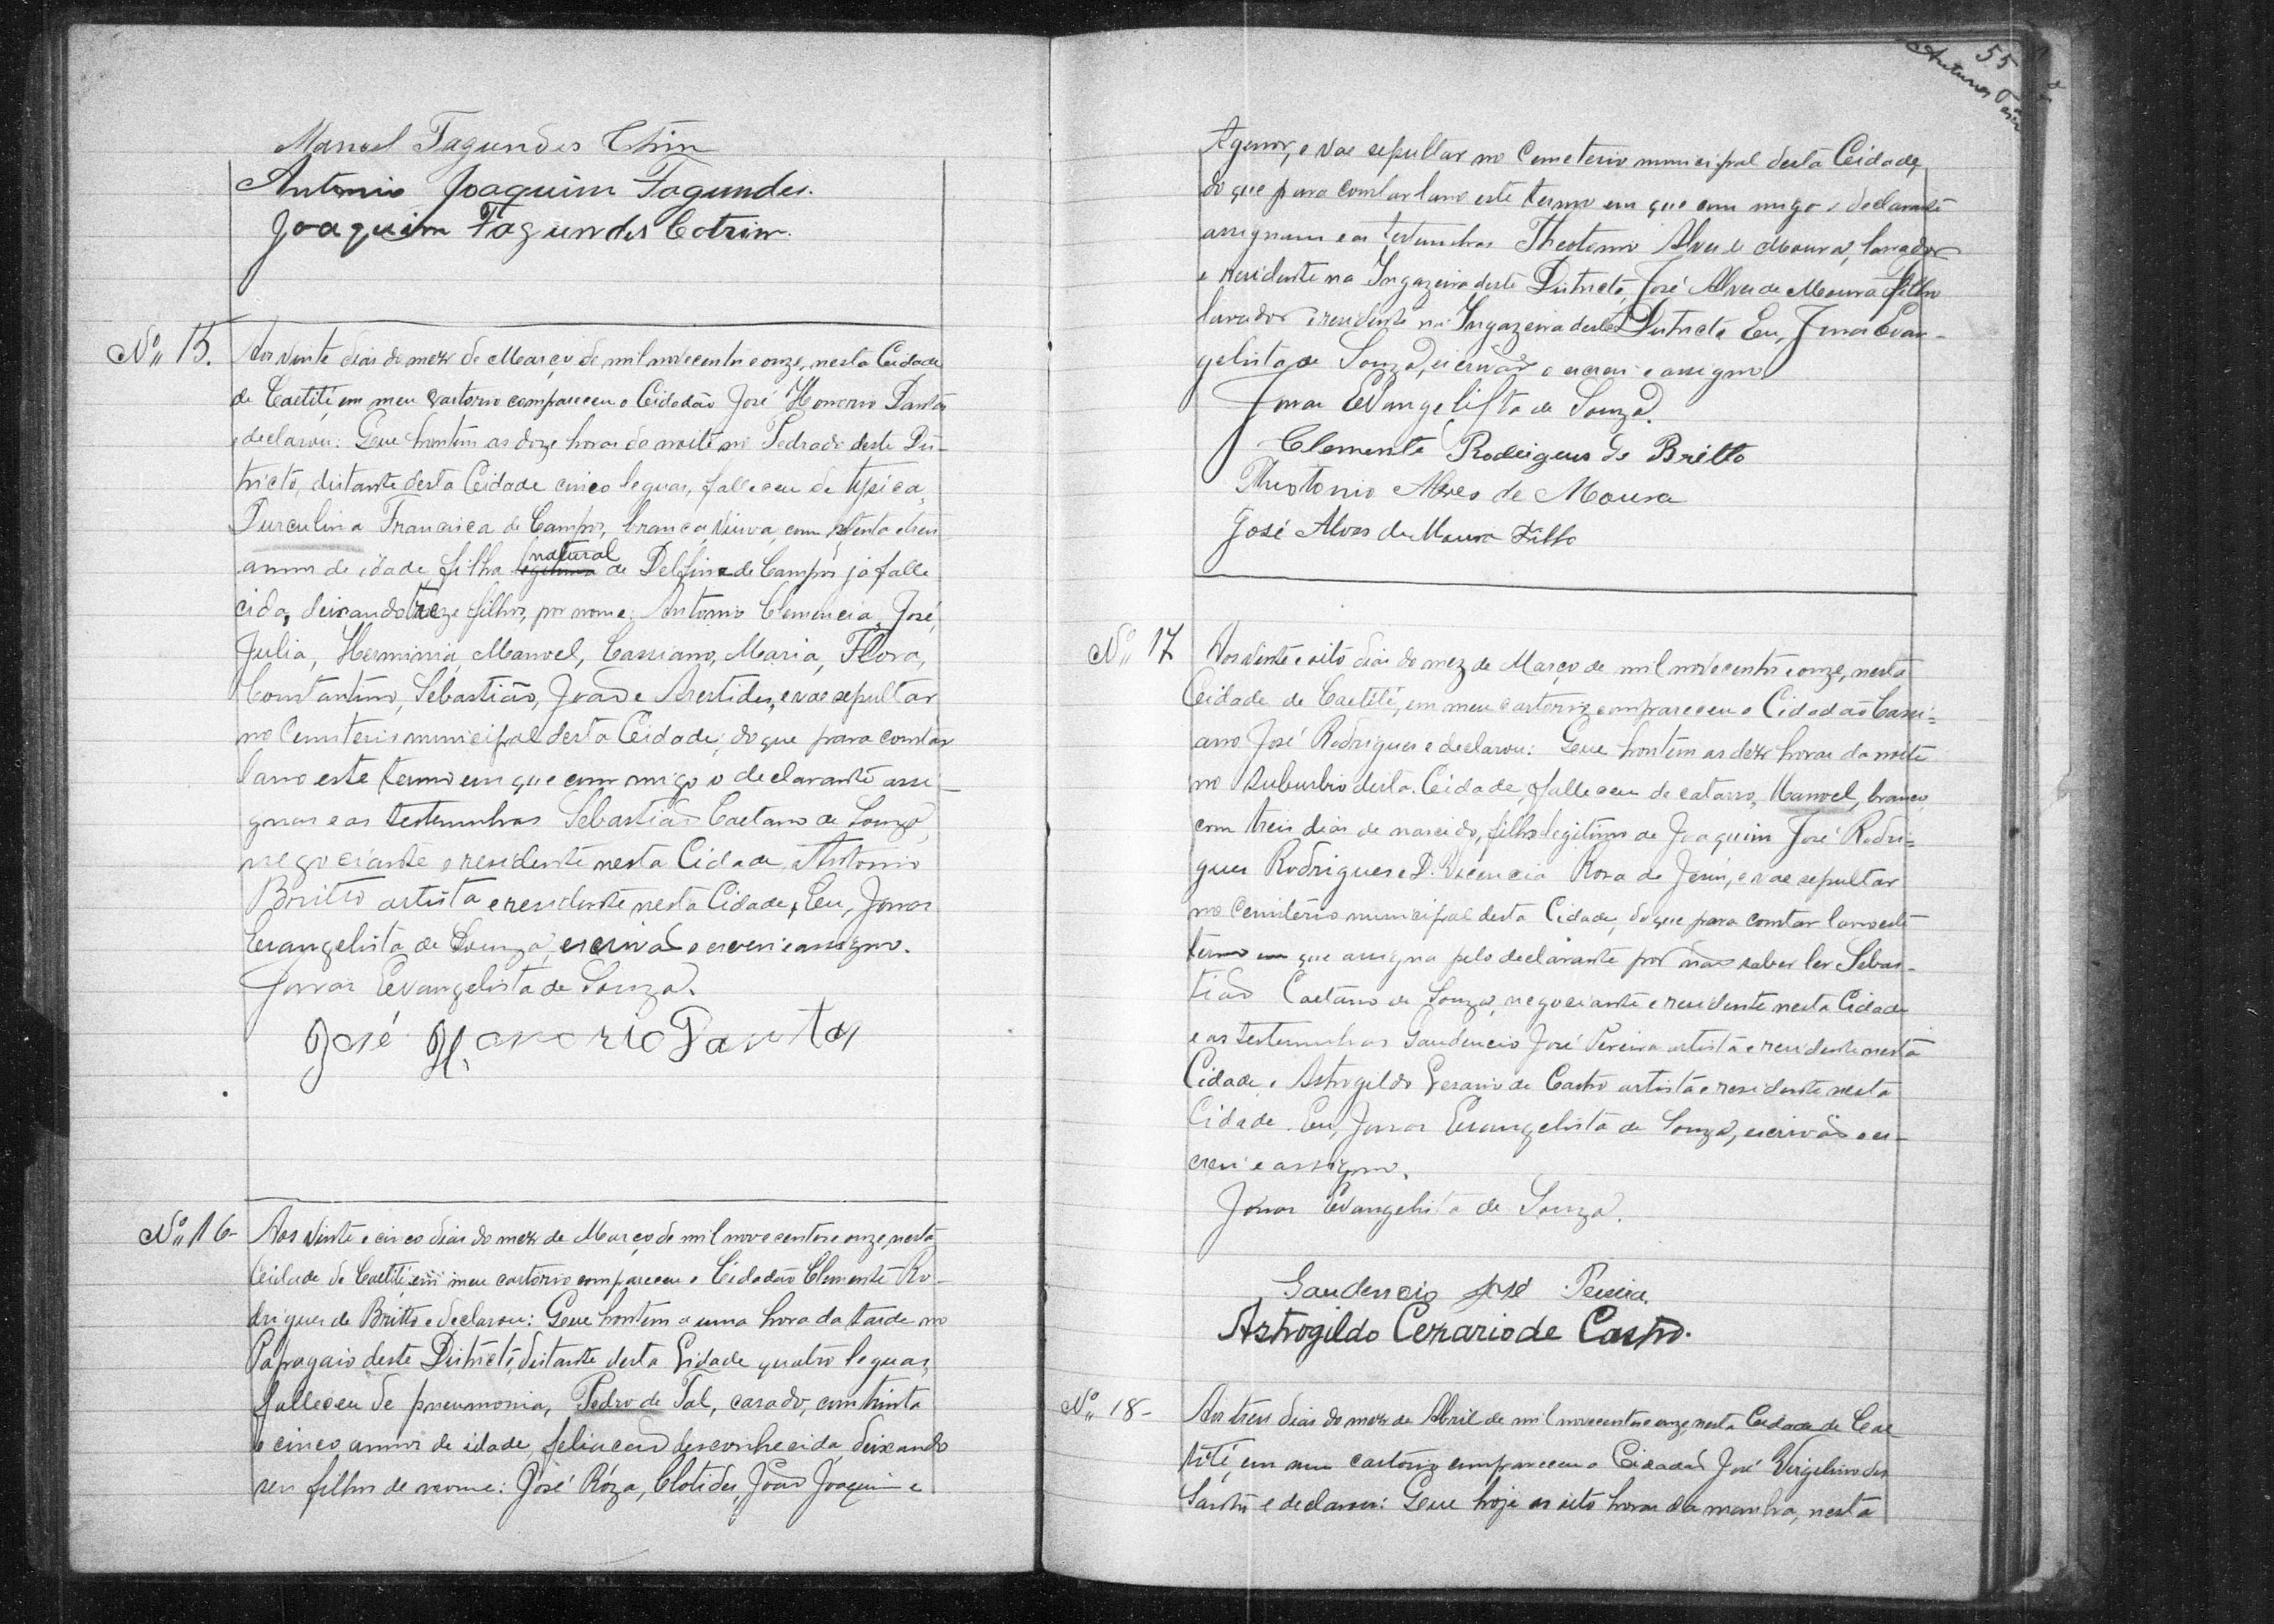 Manoel Fagundes Ctrin
Antonio Joaquim Fagundes.
Joaquim Fagundes Cotrim.
Nº 15.
Aos vinte dias do mez de Março de mil novecentos e onze, nesta Cidade
de Caetité, em meu cartorio compareceu o Cidadão José Honorio Dantas
e declarou: Que hontem as doze horas da noite no Pedrado deste Dis-
tricto, distante desta Cidade cinco leguas, falleceu de typica,
Durculina Francisca de Campos, branca, viuva, com setenta e treis
annos de idade, filha legitima natural de Delfina de Campos já falle
cida, deixando treze filhos, por nome: Antonio Clemencia, José,
Julia, Herminia, Manoel, Cassiano, Maria, Flora,
Constantino, Sebastião, João e Arestides, e vae sepultar
no Cemiterio municipal desta Cidade; do que para constar
lavro este termo em que com migo o declarante assi-
gnas e as testemunhas Sebastião Caetano de Souza,
negociante e residente nesta Cidade, Antonio
Britto artista e residente nesta Cidade, Eu, Jonas
Evangelista de Souza, escrivão o escrevi e assigno.
Jonas Evangelista de Souza.
José Honorio Dantas
Nº 16-
Aos vinte e cinco dias do mez de Março de mil novecentos e onze, nesta
Cidade de Caetité, em meu cartorio compareceu o Cidadão Clemente Ro-
drigues de Britto e declarou: Que hontem a uma hora da tarde no
Papagaio deste Districto, distante desta Cidade quatro leguas,
falleceu de pneumonia, Pedro de Tal, casado, com trinta
e cinco annos de idade, feliacão desconhecida, deixando
seis filhos de nome: José Róza, Clotides, João Joaquim e
55
Antunes
Agenor, e vae sepultar no Cemeterio municipal desta Cidade,
do que para constar lavro este termo em que com migo o declarante
assignam e as testemunhas Theotonio Alves de Moura, lavrador
e residente na Ingazeira deste Districto, José Alves de Moura Filho
lavrador e residente na Ingazeira deste Districto Eu, Jonas Evan-
gelista de Souza, escrivão o escrevi e assigno.
Jonas Evangelista de Souza.
Clemente Rodrigues de Britto
Theotonio Alves de Moura
José Alves de Moura Filho
Nº 17
Aos vinte e oito dias do mez de Março de mil novecentos e onze, nesta
Cidade de Caetité, em meu cartorio compareceu o Cidadão Cassi=
ano José Rodrigues e declarou: Que hontem as dez horas da noite
no Suburbio desta Cidade, falleceu de catarro, Manoel, branco,
com treis dias de nascido, filho legitimo de Joaquim José Rodri=
gues Rodrigues e D. Vicencia Rosa de Jesus, e vae sepultar
no Cemiterio municipal desta Cidade, do que para constar lavro este
termo em que assigna pelo declarante por não saber ler Sebas-
tião Caetano de Souza, negociante e residente nesta Cidade
e as testemunhas Gaudencio José Pereira artista e residente nesta
Cidade e Astrogildo Cesario de Castro artista e residente nesta
Cidade. Eu, Jonas Evangelista de Souza, escrivão o es-
crevi e assigno.
Jonas Evangelista de Souza.
Gaudencio José Pereira.
Astrogildo Cezario de Castro.
Nº 18-
Aos treis dias do mez de Abril de mil novecentos e onze, nesta Cidade de Cae
tité, em meu cartorio compareceu o Cidadão José Virgelino dos
Santos e declarou: Que hoje as oito horas da manha, nesta